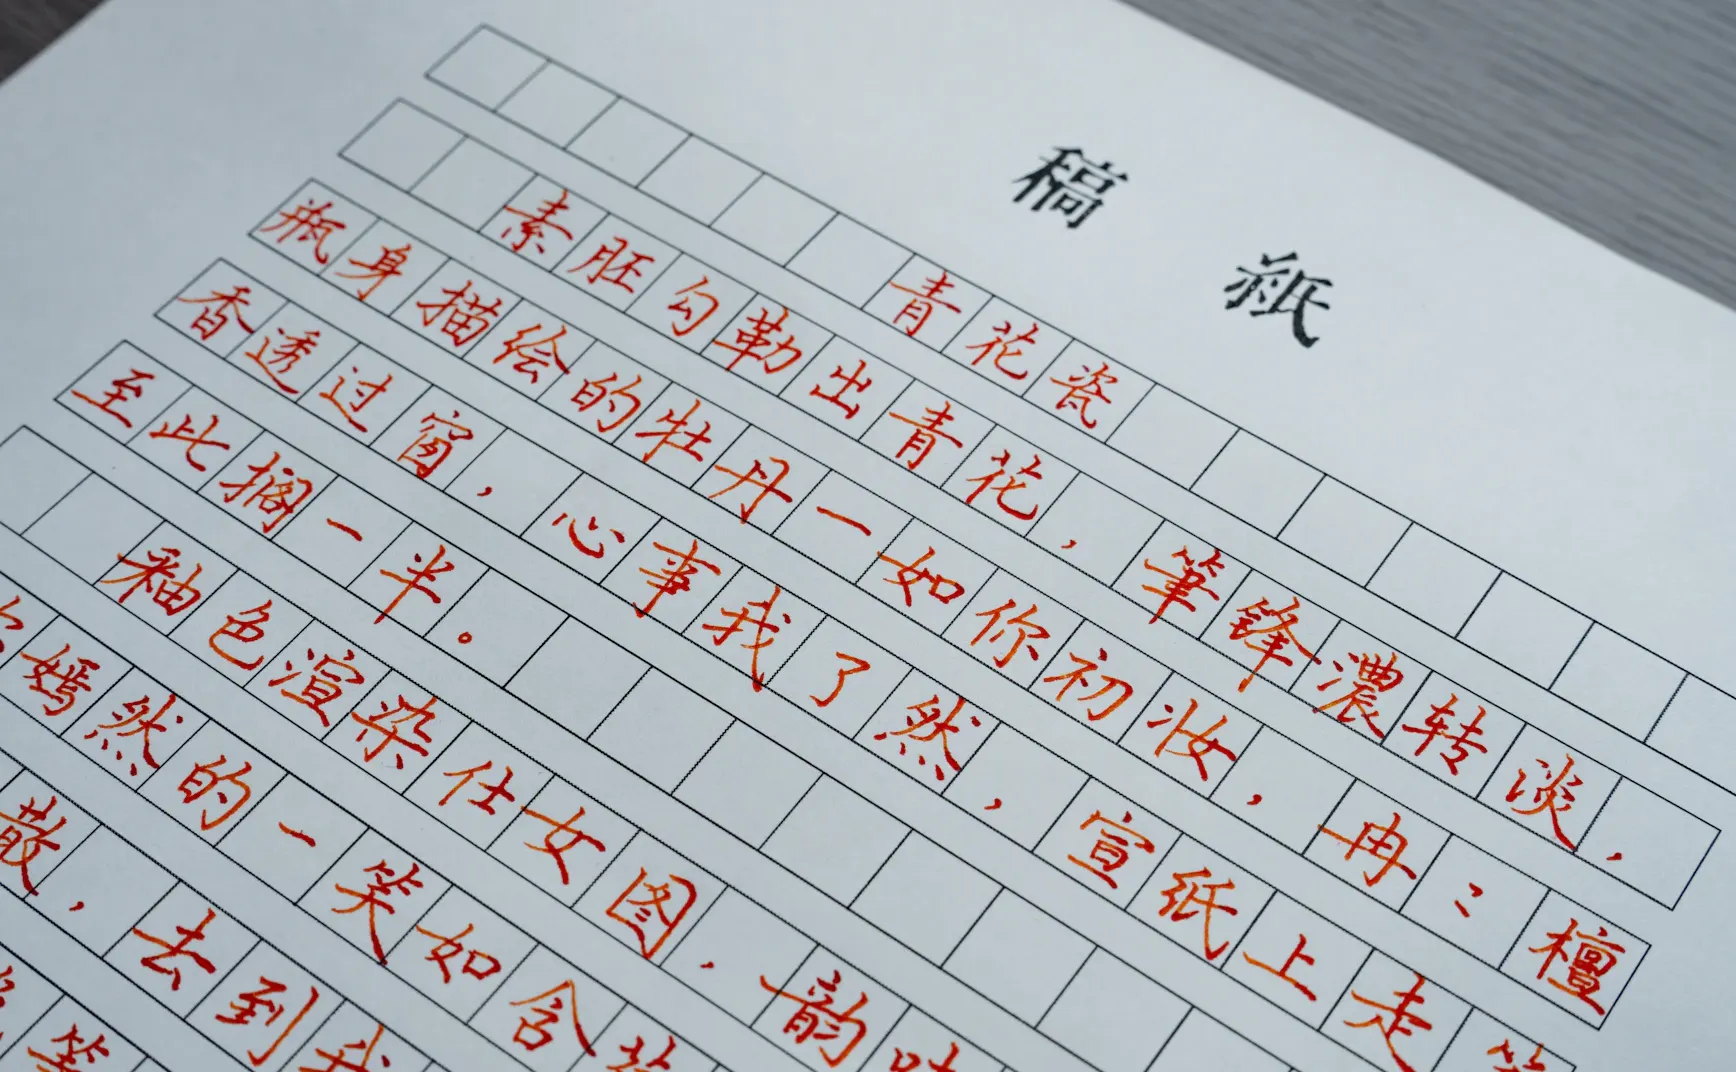 稿 紙
青花瓷
素胚勾勒出青花，筆锋濃转淡，
瓶身描绘的牡丹一如你初妆，冉〻檀
香透过窗，心事我了然，宣纸上走
至此搁一半。
釉色渲染仕女图，韵
嫣然的一笑如含
散，去到我